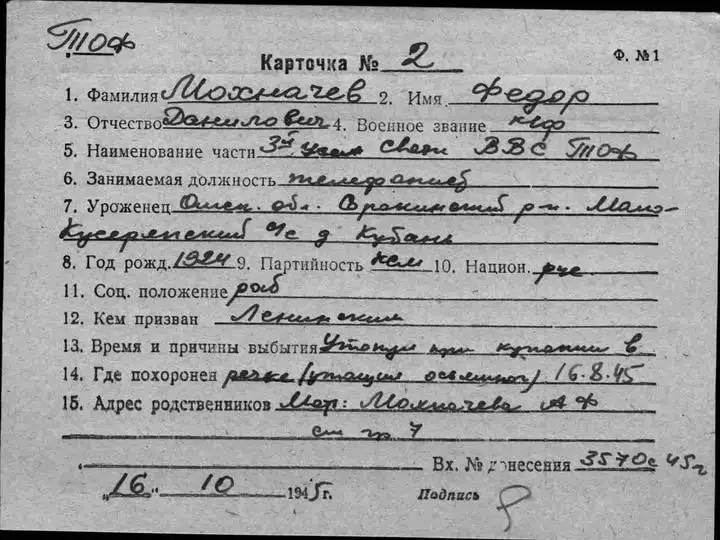 ТОФ
Карточка № 2 Ф. №1
1. Фамилия Мохначев 2. Имя Федор
3. Отчество Данилович 4. Военное звание к/ф
5. Наименование части 3й узел связи ВВС ТОФ
6. Занимаемая должность телефонист
7. Уроженец Омск. обл. р-н. Мало-
с/с д Кубань
8. Год рожд. 1924 9. Партийность ксм 10. Национ. рус.
11. Соц. положение раб
12. Кем призван Ленинским
13. Время и причины выбытия Утонул при купании в
14. Где похоронен речке 16.8.45
15. Адрес родственников Мать: Мохначева А Ф
см гр 7
Вх. № донесения 3570с 45г
„16" 10 1945г. Подпись